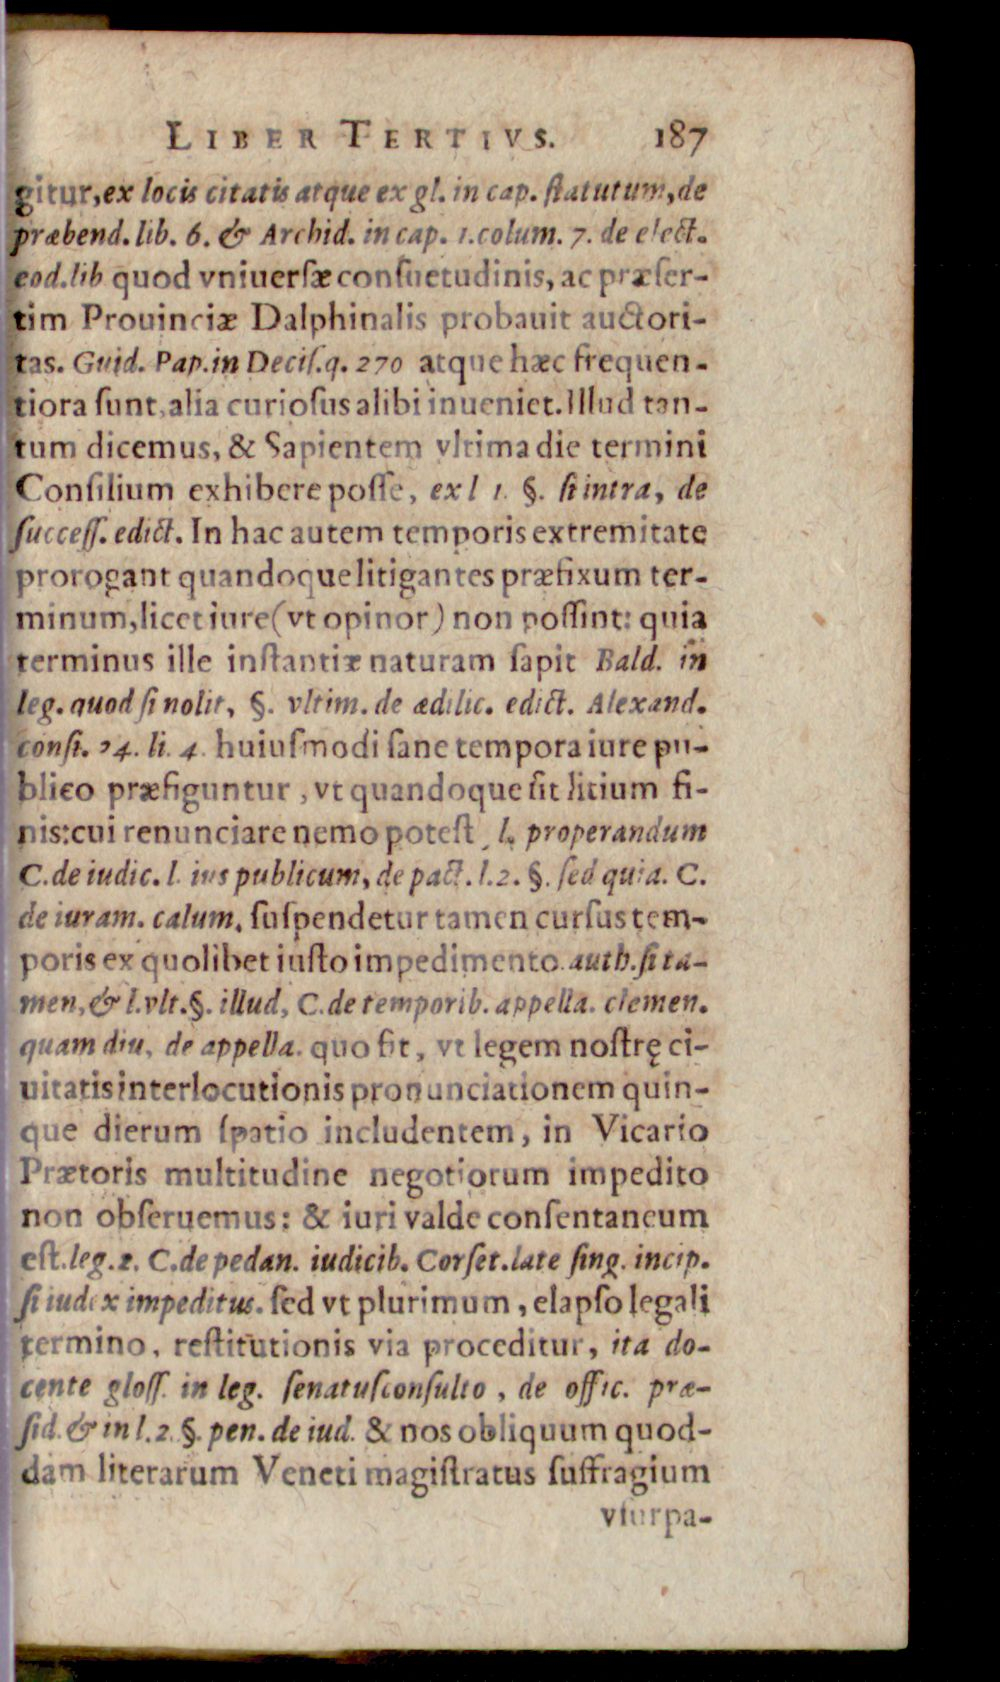 LIBER TERTIVS. 187
gitur, ex locis citatis atque ex gl. in cap. ſtatutum, de
præbend. lib. 6. & Archid. in cap. 1. colum. 7. de elect.
eod. lib quod vniuerſæ conſuetudinis, ac præſer-
tim Prouinciæ Dalphinalis probauit auctori-
tas. Guid. Pap. in Deciſ. q. 270 atque hæc frequen-
tiora ſunt, alia curioſus alibi inueniet. Illud tan-
tum dicemus, & Sapientem vltima die termini
Conſilium exhibere poſſe, ex l 1. §. ſi intra, de
ſucceſſ. edict. In hac autem temporis extremitate
prorogant quandoque litigantes præfixum ter-
minum, licet iure (vt opinor) non poſſint: quia
terminus ille inſtantiæ naturam ſapit Bald. in
leg. quod ſi nolit, §. vltim. de ædilic. edict. Alexand.
conſi. 24. li. 4. huiuſmodi ſane tempora iure pu-
blico præfiguntur, vt quandoque ſit litium fi-
nis: cui renunciare nemo poteſt, l. properandum
C. de iudic. l. ius publicum, de pact. l. 2. §. ſed quia. C.
de iuram. calum. ſuſpendetur tamen curſus tem-
poris ex quolibet iuſto impedimento. auth. ſi ta-
men, & l. vlt. §. illud, C. de temporib. appella. clemen.
quam diu, de appella. quo fit, vt legem noſtrę ci-
uitatis interlocutionis pronunciationem quin-
que dierum ſpatio includentem, in Vicario
Prætoris multitudine negotiorum impedito
non obſeruemus: & iuri valde conſentaneum
eſt. leg. 2. C. de pedan. iudicib. Corſet. late ſing. incip.
ſi iudex impeditus. ſed vt plurimum, elapſo legali
termino, reſtitutionis via proceditur, ita do-
cente gloſſ. in leg. ſenatuſconſulto, de offic. præ-
ſid. & in l. 2. §. pen. de iud. & nos obliquum quod-
dam literarum Veneti magiſtratus ſuffragium
vſurpa-